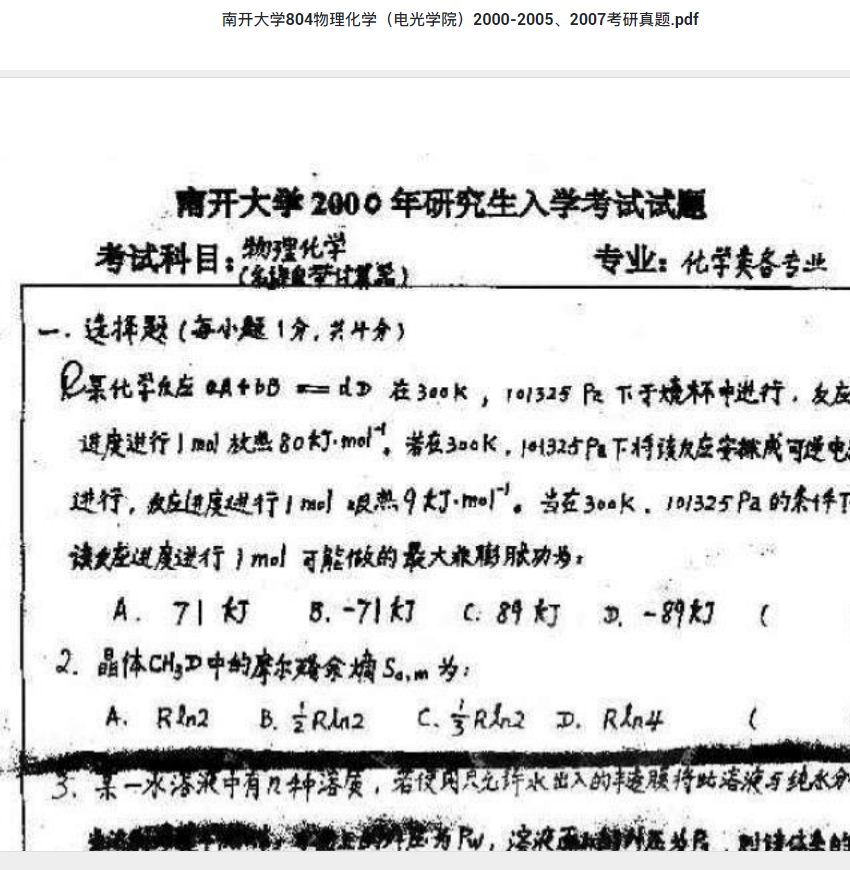 南开大学804物理化学（电光学院）2000-2005、2007考研真题.pdf
南开大学2000年研究生入学考试试题
考试科目：物理化学 专业：化学类各专业
一．选择题（每小题1分，共4分）
某化学反应 aA+bB = dD 在300K，101325 Pa 下于烧杯中进行，反应
进度进行1mol放热80kJ·mol⁻¹。若在300K，101325Pa下将该反应安排成可逆电
进行，反应进度进行1mol 吸热9kJ·mol⁻¹。当在300K，101325Pa的条件下
该反应进度进行1mol 可能做的最大非膨胀功为：
A. 71 kJ B. -71 kJ C. 89 kJ D. -89kJ (
2. 晶体CH₃D中的摩尔残余熵 S₀,m 为：
A. Rln2 B. ½Rln2 C. ⅓Rln2 D. Rln4 (
3. 某一水溶液中有n种溶质，若使用只允许水出入的半透膜将此溶液与纯水分
外压为Pw，溶液